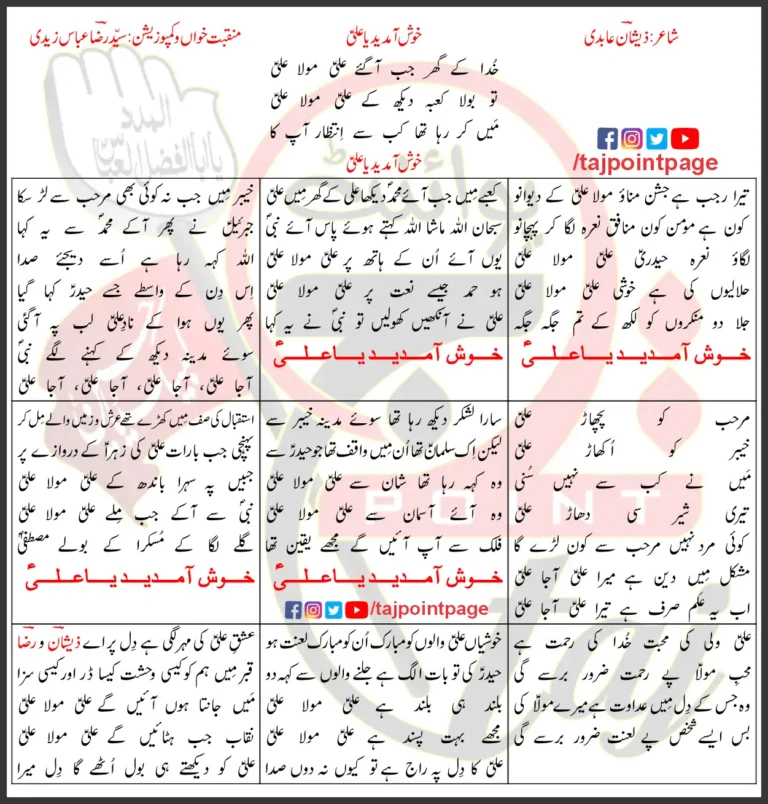 شاعر: ذیشان عابدی
خوش آمدید یا علیؑ
منقبت خواں و کمپوزیشن: سیّد رضا عباس زیدی
خُدا کے گھر جب آگئے علیؑ مولا علیؑ
تو بولا کعبہ دیکھ کے علیؑ مولا علیؑ
مَیں کر رہا تھا کب سے اِنتظار آپ کا
خوش آمدید یا علیؑ
/tajpointpage
تیرا رجب ہے جشن مناؤ مولا علیؑ کے دیوانو
کون ہے مؤمن کون منافق نعرہ لگا کر پہچانو
لگاؤ نعرہ حیدریؑ علیؑ مولا علیؑ
حلالیوں کی ہے خوشی علیؑ مولا علیؑ
جلا دو منکروں کو لکھ کے تم جگہ جگہ
خوش آمدید یا علیؑ
کعبے میں جب آئے محمدؐ دیکھا علی کے گھر مِیں علیؑ
سبحان اللہ ماشا اللہ کہتے ہوئے پاس آئے نبیؐ
یوں آئے اُن کے ہاتھ پر علیؑ مولا علیؑ
ہو حمد جیسے نعت پر علیؑ مولا علیؑ
علیؑ نے آنکھیں کھولیں تو نبیؐ نے یہ کہا
خوش آمدید یا علیؑ
خیبر مِیں جب نہ کوئی بھی مرحب سے لڑ سکا
جبرئیلؑ نے پھر آکے محمدؐ سے یہ کہا
اللہ کہہ رہا ہے اُسے دیجئے صدا
اِس دِن کے واسطے جسے حیدرؑ کہا گیا
پھر یوں ہوا کے نادِعلیؑ لب پہ آگئی
سوئے مدینہ دیکھ کے کہنے لگے نبیؐ
آجا علیؑ، آجا علیؑ، آجا علیؑ، آجا علیؑ
مرحب کو پچھاڑ علیؑ
خیبر کو اُکھاڑ علیؑ
مَیں نے کب سے نہیں سُنی
تیری شیر سی دھاڑ علیؑ
کوئی مرد نہیں مرحب سے کون لڑے گا
مشکل مِیں دین ہے میرا علیؑ آجا علیؑ
اب یہ علم صرف ہے تیرا علیؑ آجا علیؑ
سارا لشکر دیکھ رہا تھا سوئے مدینہ خیبر سے
لیکن اِک سلمانؑ تھا اُن مِیں واقف تھا جو حیدرؑ سے
وہ کہہ رہا تھا شان سے علیؑ مولا علیؑ
وہ آئے آسمان سے علیؑ مولا علیؑ
فلک سے آپ آئیں گے مجھے یقین تھا
خوش آمدید یا علیؑ
/tajpointpage
استقبال کی صف مِیں کھڑے تھے عرش و زمیں والے مِل کر
پہنچی جب بارات علیؑ کی زہراؑ کے دروازے پر
جبیں پہ سہرا باندھ کے علیؑ مولا علیؑ
نبیؐ سے آکے جب مِلے علیؑ مولا علیؑ
گلے لگا کے مُسکرا کے بولے مصطفیٰؐ
خوش آمدید یا علیؑ
علیؑ ولی کی محبت خُدا کی رحمت ہے
محبِ مولاؑ پے رحمت ضرور برسے گی
وہ جس کے دِل مِیں عداوت ہے میرے مولاؑ کی
بس ایسے شخص پے لعنت ضرور برسے گی
خوشیاں علیؑ والوں کو مبارک اُن کو مبارک لعنت ہو
حیدرؑ کی تو بات الگ ہے جلنے والوں سے کہہ دو
بلند ہی بلند ہے علیؑ مولا علیؑ
مجھے بہت پسند ہے علیؑ مولا علیؑ
علیؑ کا دِل پہ راج ہے تو کیوں نہ دوں صدا
عشقِ علیؑ کی مہر لگی ہے دِل پر اے ذیشانؔ و رضاؔ
قبر مِیں ہم کو کیسی وحشت کیسا ڈر اور کیسی سزا
مَیں جانتا ہوں آئیں گے علیؑ مولا علیؑ
نقاب جب ہٹائیں گے علیؑ مولا علیؑ
علیؑ کو دیکھتے ہی بول اُٹھے گا دِل میرا
المدد
یا ابا الفضل العباسؑ
POINT
taj